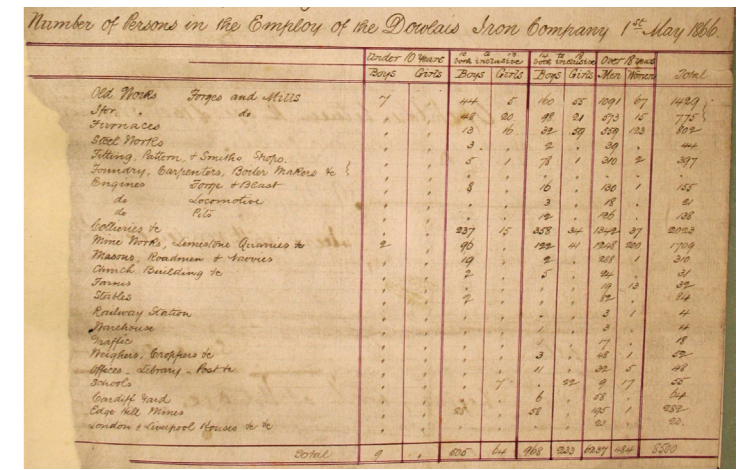 Number of Persons in the Employ of the Dowlais Iron Company 1st May 1866.
Under 10 Years 10 to 13 both inclusive 13 to 18 both inclusive Over 18 years
Boys Girls Boys Girls Boys Girls Men Women Total
Old Works Forges and Mills 7 . 44 5 160 55 1091 67 1429
Ifor " do . . 48 20 98 21 573 15 775
Furnaces . . 13 16 32 59 559 123 802
Steel Works . . 3 . 2 . 39 . 44
Fitting, Pattern, & Smiths Shops.
Foundry, Carpenters, Boiler Makers &c . . 5 1 78 1 310 2 397
Engines Forge & Blast . . 8 . 16 . 130 1 155
do Locomotive . . . . 3 . 18 . 21
do Pits . . . . 12 . 126 . 138
Collieries &c . . 237 15 358 34 1342 37 2023
Mine Works, Limestone Quarries &c 2 . 96 . 122 41 1248 200 1709
Masons, Roadmen & Navvies . . 19 . 2 . 288 1 310
Church Building &c . . 2 . 5 . 24 . 31
Farms . . . . . . 19 13 32
Stables . . 2 . . . 82 . 84
Railway Station . . . . . . 3 1 4
Warehouse . . . . 1 . 3 . 4
Traffic . . . . 1 . 17 . 18
Weighers, Croppers &c . . . . 3 . 48 1 52
Offices - Library - Post &c . . . . 11 . 32 5 48
Schools . . . 7 . 22 9 17 55
Cardiff Yard . . . . 6 . 58 . 64
Edge Hill Mines . . 28 . 58 . 195 1 282
London & Liverpool Houses &c &c . . . . . . 23 . 23
Total 9 . 505 64 968 233 6237 484 8500